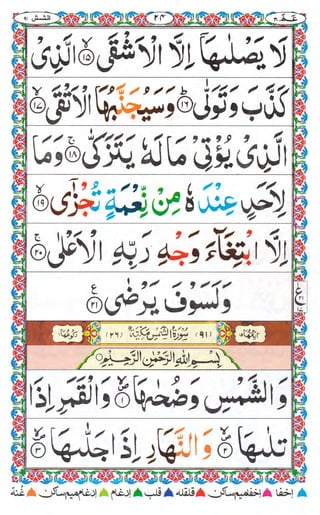 عَمَّ ٣٠ ٢٤ الشمس ٩١
لَا يَصْلٰىهَاۤ اِلَّا الْاَشْقَى ۙ﴿۱۵﴾ الَّذِىْ
كَذَّبَ وَتَوَلّٰى ؕ﴿۱۶﴾ وَسَيُجَنَّبُهَا الْاَتْقَى ۙ﴿۱۷﴾
الَّذِىْ يُؤْتِىْ مَالَهٗ يَتَزَكّٰى ۚ﴿۱۸﴾ وَمَا
لِاَحَدٍ عِنْدَهٗ مِنْ نِّعْمَةٍ تُجْزٰٓى ۙ﴿۱۹﴾
اِلَّا ابْتِغَآءَ وَجْهِ رَبِّهِ الْاَعْلٰى ۚ﴿۲۰﴾
وَلَسَوْفَ يَرْضٰى ﴿۲۱﴾
(٩١) سُوْرَةُ الشَّمْسِ مَكِّيَّةٌ (٢٦)
بِسْمِ اللّٰهِ الرَّحْمٰنِ الرَّحِيْمِ
وَالشَّمْسِ وَضُحٰىهَا ﴿۱﴾ وَالْقَمَرِ اِذَا
تَلٰىهَا ﴿۲﴾ وَالنَّهَارِ اِذَا جَلّٰىهَا ﴿۳﴾
اخفا اخفامیم ساکن قلقلہ قلب ادغام ادغام میم ساکن غنہ